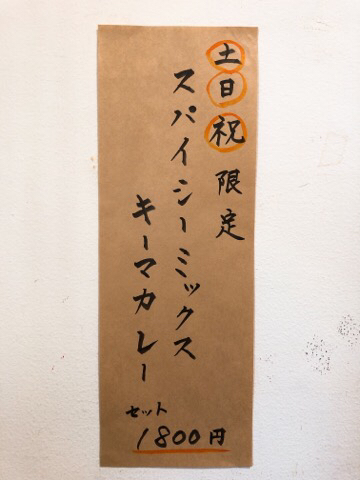 土日祝限定
スパイシーミックス
キーマカレー
セット
1800円